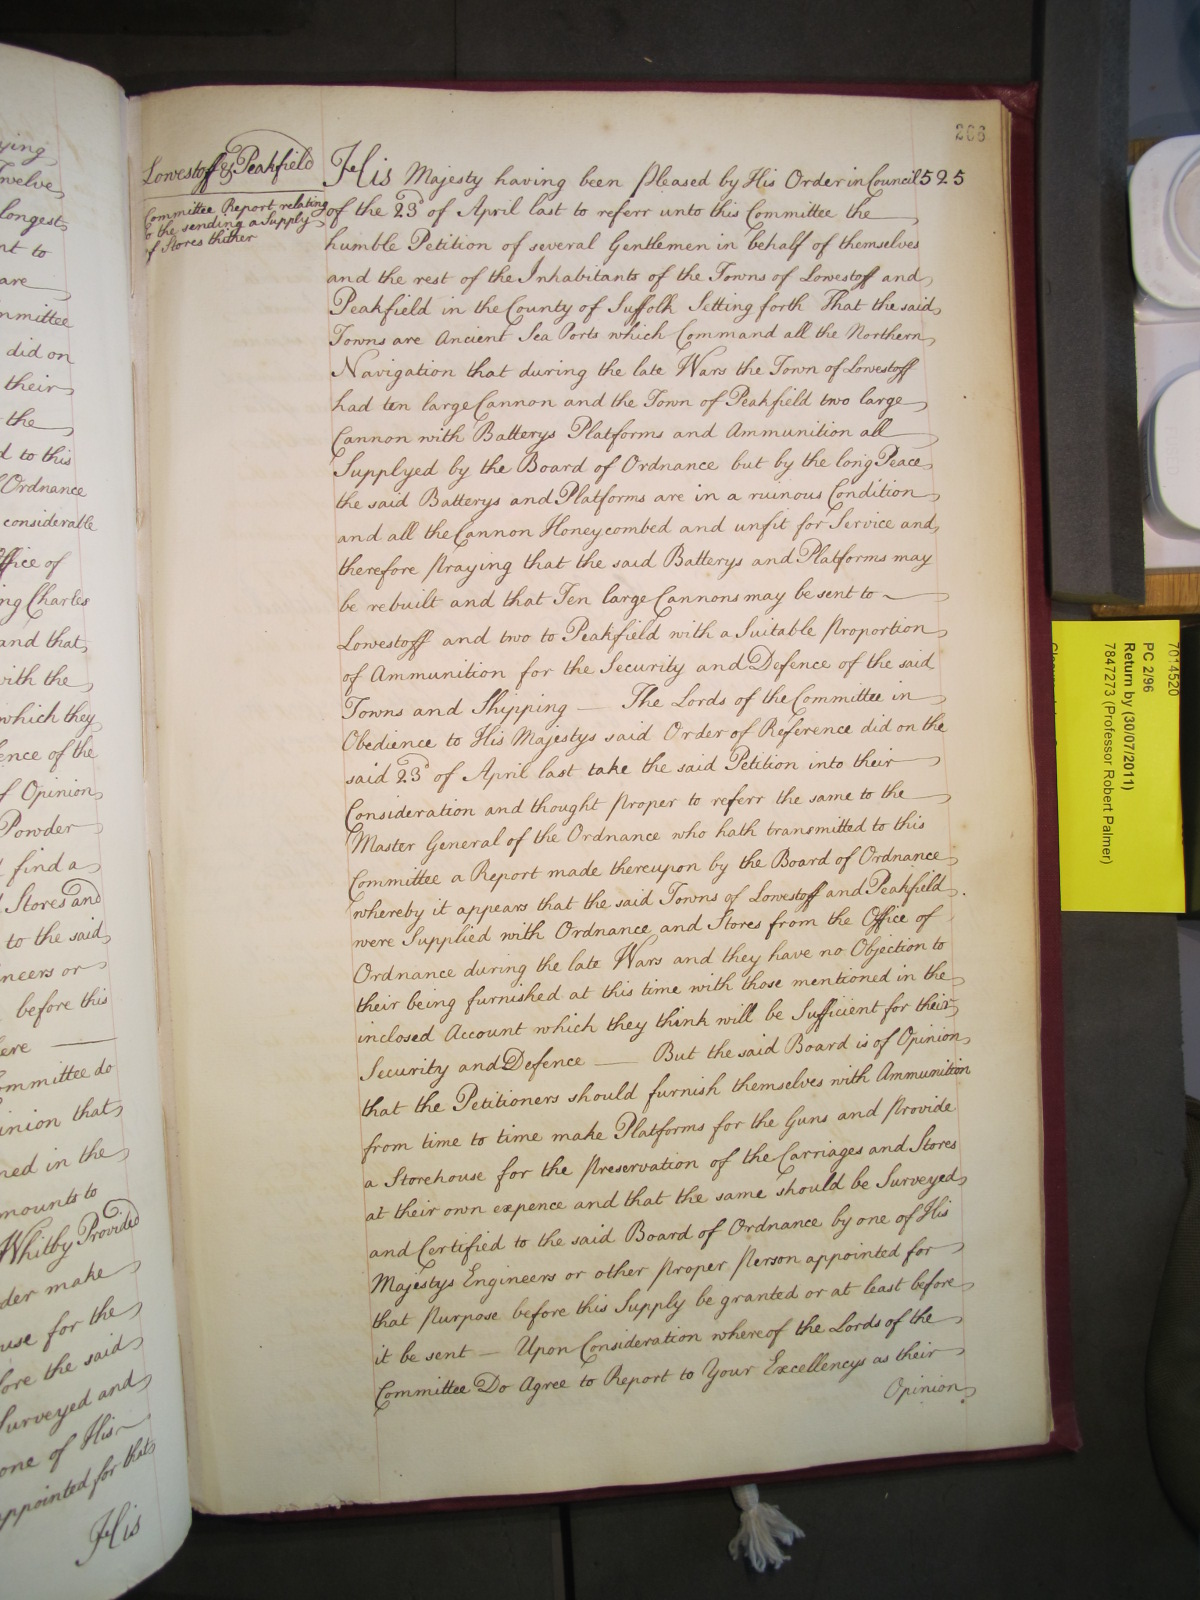 ying
Twelve
longest
nt to
are
mmittee
did on
their
the
d to this
Ordnance
considerable
ffice of
ng Charles
and that
with the
which they
ence of the
f Opinion
Powder
find a
Stores and
to the said
neers or
before this
ere
ommittee do
inion that
ned in the
mounts to
Whitby Provided
der make
use for the
fore the said
Surveyed and
one of His
appointed for that
His
266
Lowestoff & Peakfield
Committee Report relating
to the sending a Supply
of Stores thither
His Majesty having been pleased by His Order in Council 525
of the 23d of April last to referr unto this Committee the
humble Petition of several Gentlemen in behalf of themselves
and the rest of the Inhabitants of the Towns of Lowestoff and
Peakfield in the County of Suffolk Setting forth That the said
Towns are Ancient Sea Ports which Command all the Northern
Navigation that during the late Wars the Town of Lowestoff
had ten large Cannon and the Town of Peakfield two large
Cannon with Batterys Platforms and Ammunition all
Supplyed by the Board of Ordnance but by the long Peace
the said Batterys and Platforms are in a ruinous Condition
and all the Cannon Honeycombed and unfit for Service and
therefore praying that the said Batterys and Platforms may
be rebuilt and that Ten large Cannons may be sent to
Lowestoff and two to Peakfield with a Suitable proportion
of Ammunition for the Security and Defence of the said
Towns and Shipping — The Lords of the Committee in
Obedience to His Majestys said Order of Reference did on the
said 23d of April last take the said Petition into their
Consideration and thought proper to referr the same to the
Master General of the Ordnance who hath transmitted to this
Committee a Report made thereupon by the Board of Ordnance
whereby it appears that the said Towns of Lowestoff and Peakfield
were Supplied with Ordnance and Stores from the Office of
Ordnance during the late Wars and they have no Objection to
their being furnished at this time with those mentioned in the
inclosed Account which they think will be Sufficient for their
Security and Defence — But the said Board is of Opinion
that the Petitioners should furnish themselves with Ammunition
from time to time make Platforms for the Guns and provide
a Storehouse for the preservation of the Carriages and Stores
at their own expence and that the same should be Surveyed
and Certified to the said Board of Ordnance by one of His
Majestys Engineers or other proper person appointed for
that purpose before this Supply be granted or at least before
it be sent — Upon Consideration whereof the Lords of the
Committee Do Agree to Report to Your Excellencys as their
Opinion
7014520
PC 2/96
Return by (30/07/2011)
7847273 (Professor Robert Palmer)